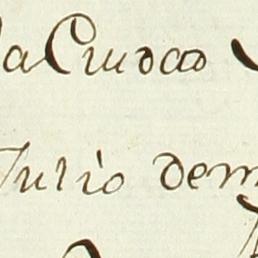 la Ciudad
Julio dem